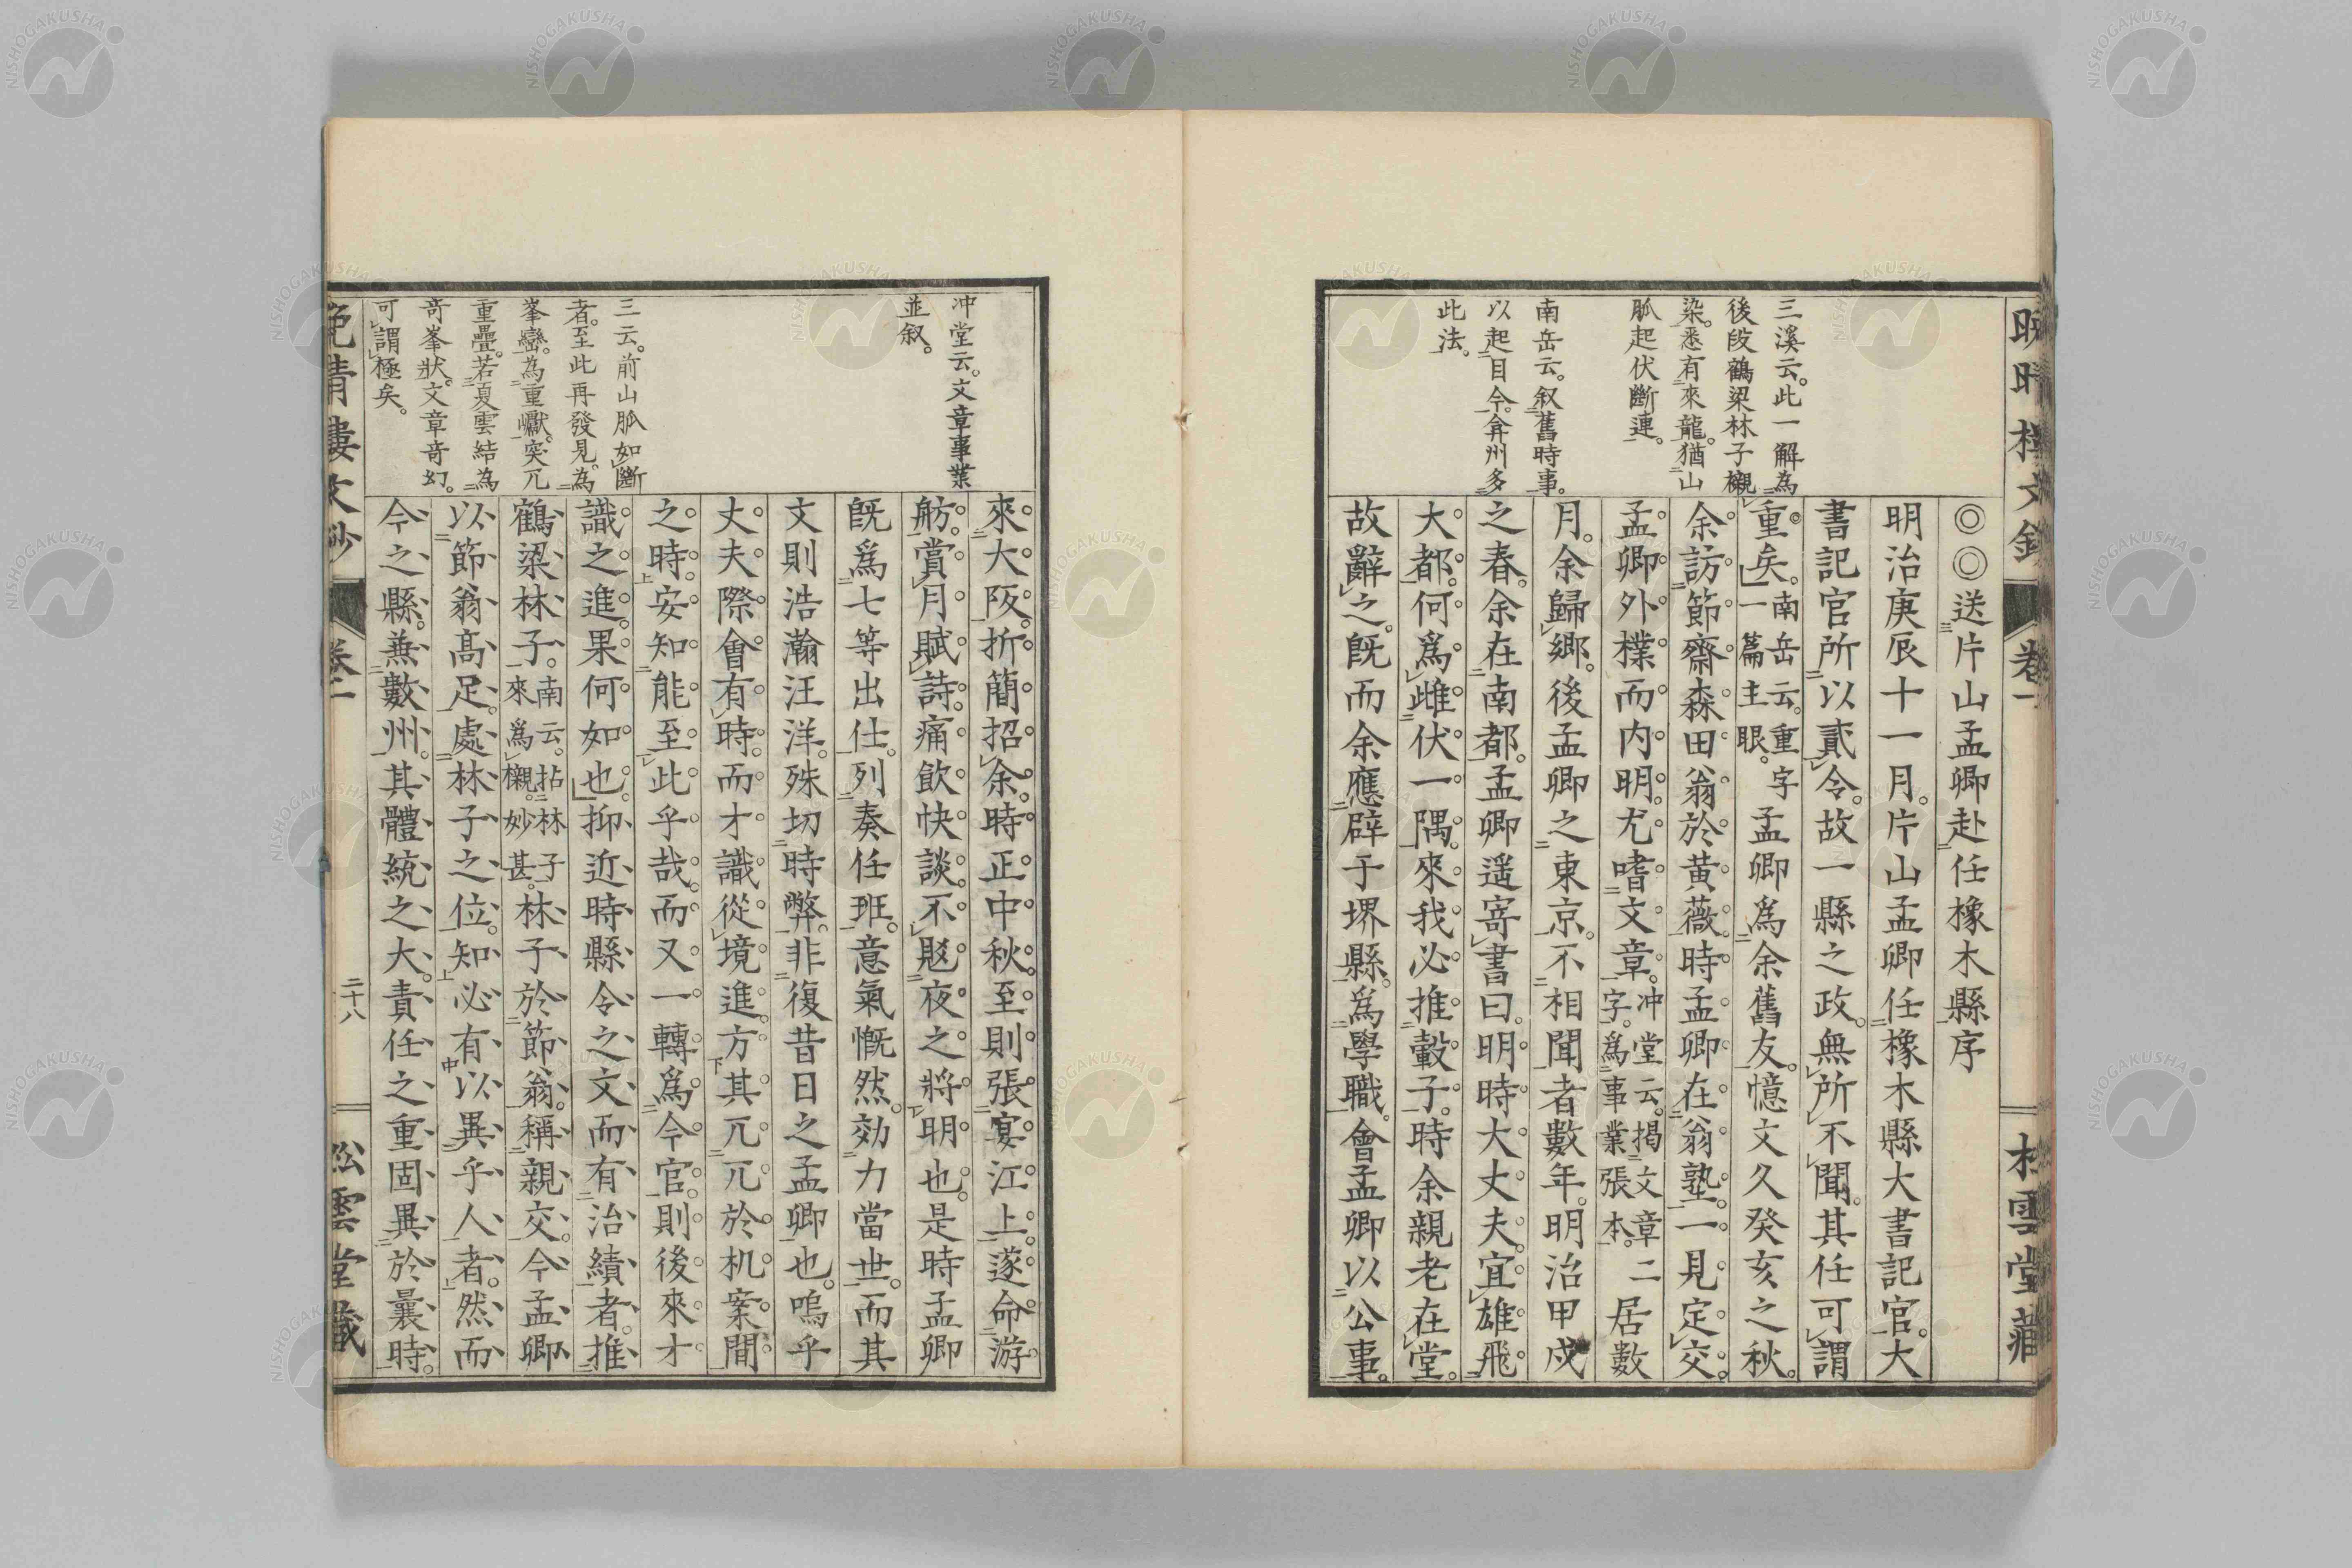 三溪云。此一解為
後段鶴梁林子櫬
染。悉有來龍。猶山
脈起伏斷連。
南岳云。叙舊時事。
以起目今。弇州多
此法。
◎◎送片山孟卿赴任橡木縣序
明治庚辰十一月。片山孟卿任橡木縣大書記官。大
書記官所以貳令。故一縣之政。無所不聞。其任可謂
重矣。南岳云。重字一篇主眼。孟卿爲余舊友。憶文久癸亥之秋。
余訪節齋森田翁於黃薇。時孟卿在翁塾。一見定交。
孟卿外樸而内明。尤嗜文章。冲堂云。揭文章二字。爲事業張本。居數
月。余歸鄉。後孟卿之東京。不相聞者數年。明治甲戌
之春。余在南都。孟卿遥寄書曰。明時大丈夫。宜雄飛
大都。何爲雌伏一隅。來我必推轂子。時余親老在堂。
故辭之。既而余應辟于堺縣。爲學職。會孟卿以公事。
卷一
冲堂云。文章事業
並叙。
三云。前山脈如斷
者。至此再發見。為
峯巒。為重巘。突兀
重疊。若夏雲結為
奇峯狀。文章奇幻。
可謂極矣。
來大阪。折簡招余。時正中秋。至則張宴江上。遂命游
舫。賞月賦詩。痛飲快談。不覐夜之將明也。是時孟卿
既爲七等出仕。列奏任班。意氣慨然。効力當世。而其
文則浩瀚汪洋。殊切時弊。非復昔日之孟卿也。嗚乎
丈夫際會有時。而才識從境進。方其兀兀於机案間
之時。安知能至此乎哉。而又一轉爲今官。則後來才
識之進。果何如也。抑近時縣令之文而有治績者。推
鶴梁林子。南云。拈林子來爲櫬。妙甚。林子於節翁。稱親交。今孟卿
以節翁高足。處林子之位。知必有以異乎人者。然而
今之縣。兼數州。其體統之大。責任之重。固異於曩時。
晩晴樓文鈔
卷一
二十八
松雲堂藏